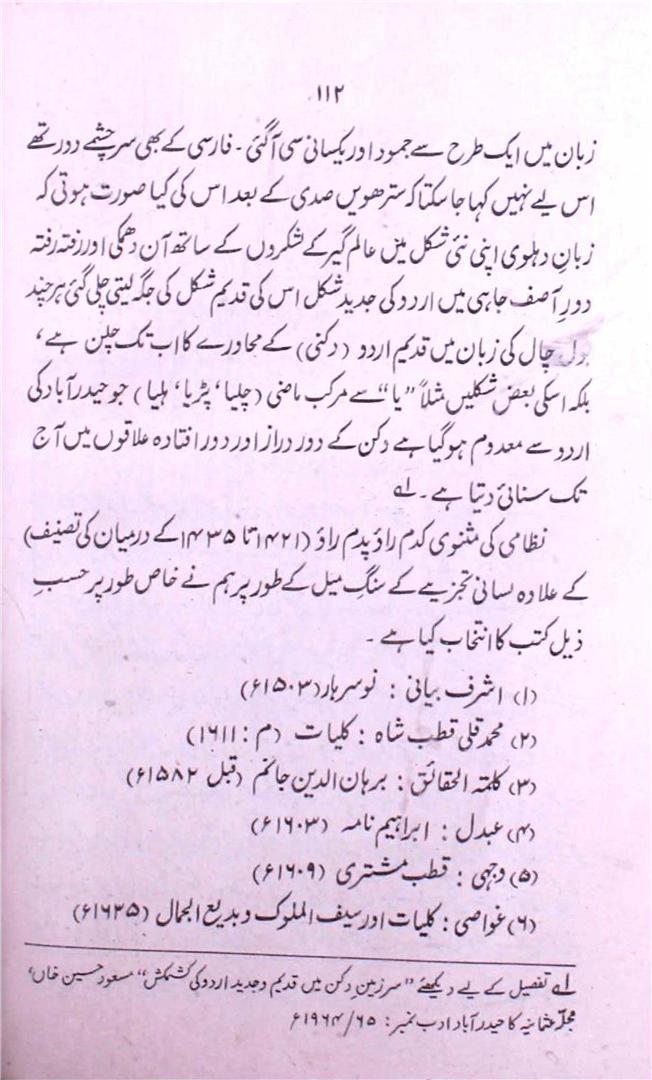 ۱۱۲
زبان میں ایک طرح سے جمود اور یکسانی سی آگئی۔ فارسی کے بھی سرچشمے دور تھے
اس لیے نہیں کہا جا سکتا کہ سترھویں صدی کے بعد اس کی کیا صورت ہوتی کہ
زبانِ دہلوی اپنی نئی شکل میں عالم گیر کے لشکروں کے ساتھ آن دھمکی اور رفتہ رفتہ
دورِ آصف جاہی میں اردو کی جدید شکل اس کی قدیم شکل کی جگہ لیتی چلی گئی ہر چند
بول چال کی زبان میں قدیم اردو (دکنی) کے محاورے کا اب تک چلن ہے،
بلکہ اسکی بعض شکلیں مثلاً "یا" سے مرکب ماضی (چلیا، پڑیا، ہلیا) جو حیدرآباد کی
اردو سے معدوم ہوگیا ہے دکن کے دور دراز اور دور افتادہ علاقوں میں آج
تک سنائی دیتا ہے۔ ۱ے
نظامی کی مثنوی کدم راؤ پدم راؤ (۱۴۲۱ تا ۱۴۳۵ کے درمیان کی تصنیف)
کے علاوہ لسانی تجزیے کے سنگِ میل کے طور پر ہم نے خاص طور پر حسبِ
ذیل کتب کا انتخاب کیا ہے۔
(۱) اشرف بیانی : نوسرہار (۱۵۰۳ء)
(۲) محمد قلی قطب شاہ : کلیات (م : ۱۶۱۱)
(۳) کلمتہ الحقائق : برہان الدین جانم (قبل ۱۵۸۲ء)
(۴) عبدل : ابراہیم نامہ (۱۶۰۳ء)
(۵) وجہی : قطب مشتری (۱۶۰۹ء)
(۶) غواصی : کلیات اور سیف الملوک و بدیع الجمال (۱۶۲۵ء)
۱ے تفصیل کے لیے دیکھئے "سرزمینِ دکن میں قدیم و جدید اردو کی کشمکش" مسعود حسین خاں،
مجلّہ عثمانیہ کا حیدرآباد ادب نمبر : ۱۹۶۴/۶۵ء